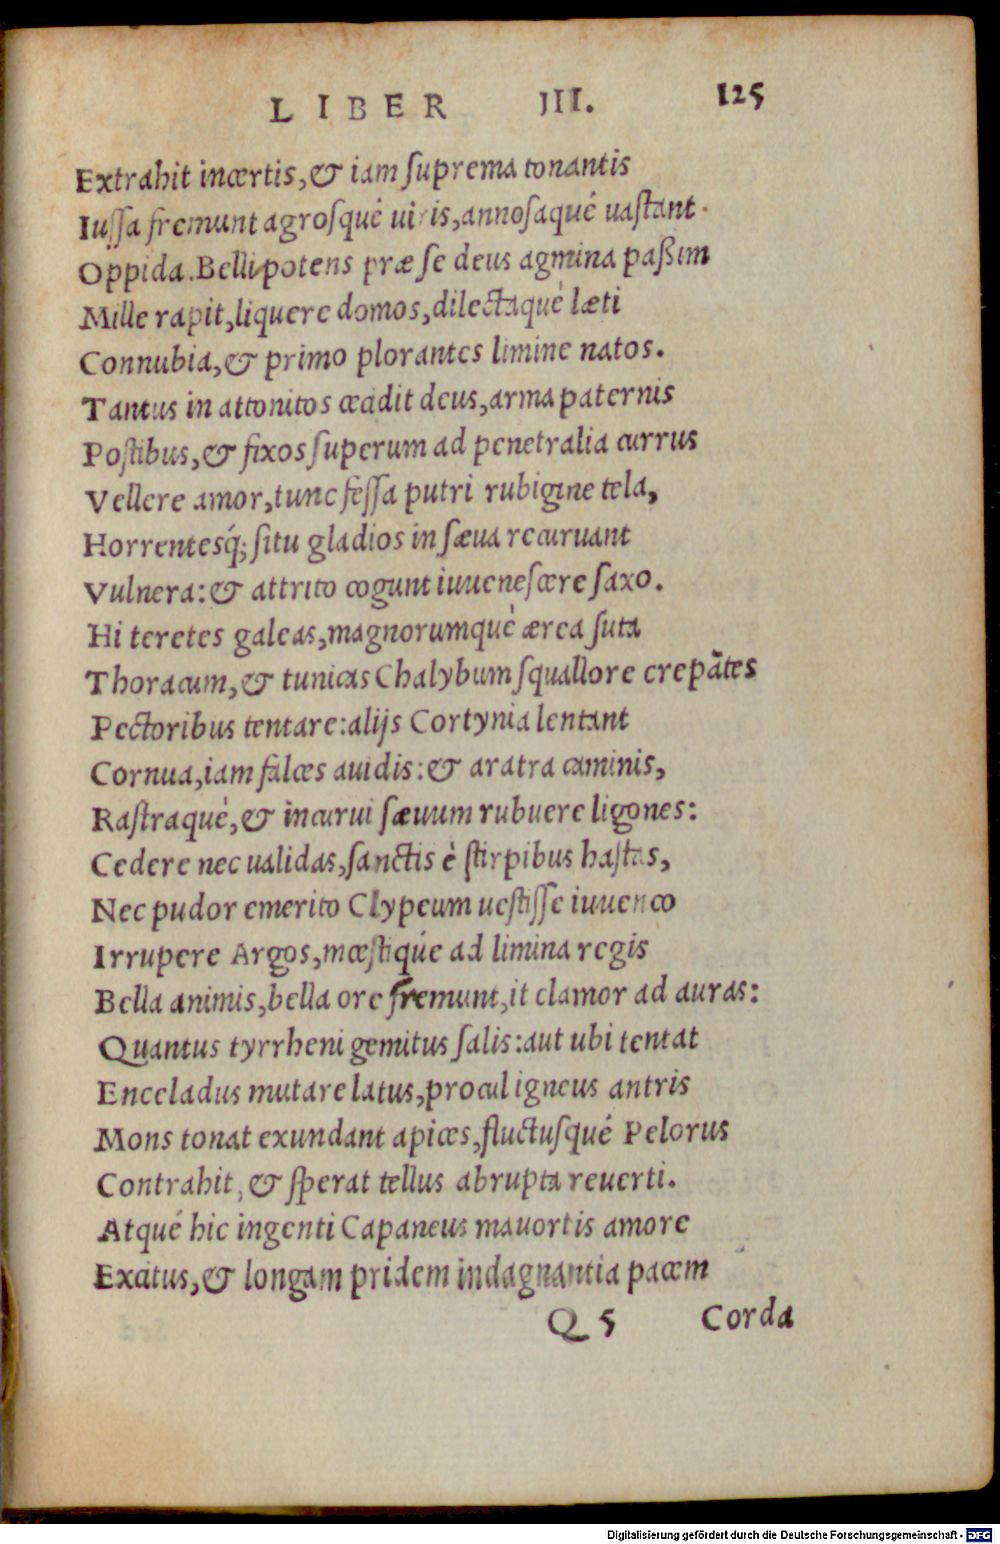 LIBER III. 125
Extrahit incertis, & iam ſuprema tonantis
Iuſſa fremunt agroſqué uiris, annoſaqué uaſtant.
Oppida. Bellipotens præ ſe deus agmina paßim
Mille rapit, liquere domos, dilectaquè læti
Connubia, & primo plorantes limine natos.
Tantus in attonitos cecidit deus, arma paternis
Poſtibus, & fixos ſuperum ad penetralia currus
Vellere amor, tunc feſſa putri rubigine tela,
Horrentesq́; ſitu gladios in ſæua recuruant
Vulnera: & attrito cogunt iuueneſcere ſaxo.
Hi teretes galeas, magnorumquè ærea ſuta
Thoracum, & tunicas Chalybum ſquallore crepãtes
Pectoribus tentare: alijs Cortynia lentant
Cornua, iam falces auidis: & aratra caminis,
Raſtraquè, & incurui ſæuum rubuere ligones:
Cedere nec ualidas, ſanctis è ſtirpibus haſtas,
Nec pudor emerito Clypeum ueſtiſſe iuuenco
Irrupere Argos, mœſtiqúe ad limina regis
Bella animis, bella ore fremunt, it clamor ad auras:
Quantus tyrrheni gemitus ſalis: aut ubi tentat
Enceladus mutare latus, procul igneus antris
Mons tonat exundant apices, fluctuſqué Pelorus
Contrahit, & ſperat tellus abrupta reuerti.
Atqué hic ingenti Capaneus mauortis amore
Excitus, & longam pridem indagnantia pacem
Q 5 Corda
Digitalisierung gefördert durch die Deutsche Forschungsgemeinschaft - DFG